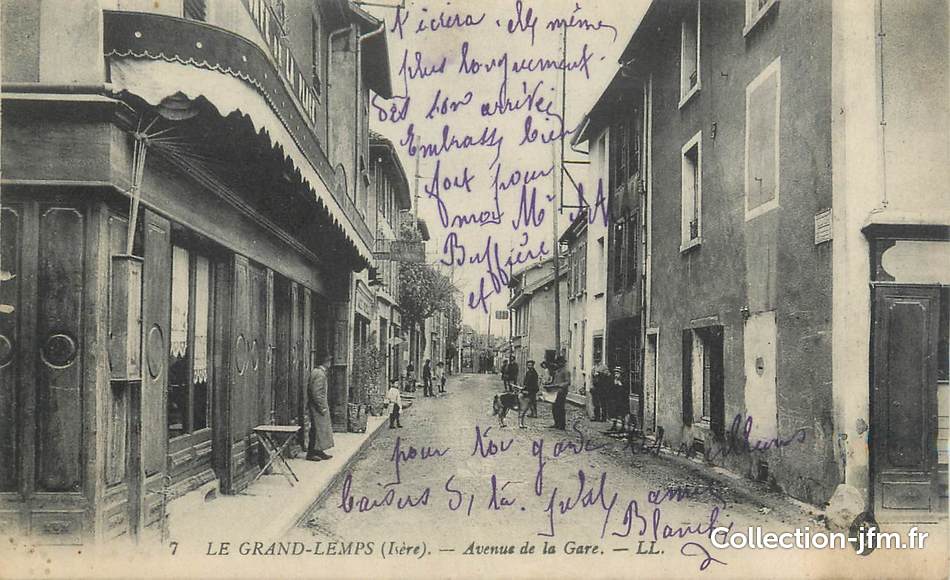 t'écrira elle même
plus longuement.
dès son arrivée
Embrasse bien
fort pour
moi Mr
Buffière
et
pour toi garde les meilleurs
baisers de ta amie
Blanche
7 LE GRAND-LEMPS (Isère). — Avenue de la Gare. — LL.
Collection-jfm.fr